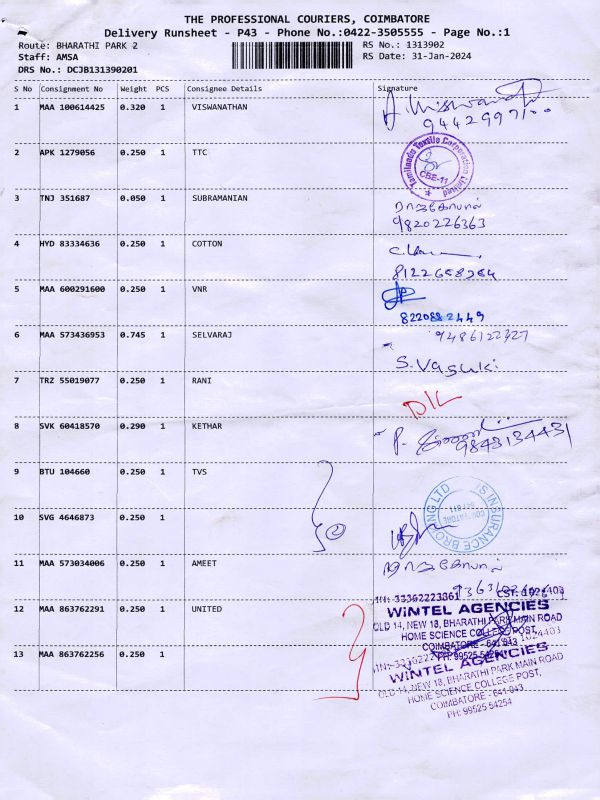 THE PROFESSIONAL COURIERS, COIMBATORE
Delivery Runsheet - P43 - Phone No.:0422-3505555 - Page No.:1
Route: BHARATHI PARK 2 RS No.: 1313902
Staff: AMSA RS Date: 31-Jan-2024
DRS No.: DCJB131390201
S No Consignment No Weight PCS Consignee Details Signature
1 MAA 100614425 0.320 1 VISWANATHAN A. Viswanath
2 APK 1279056 0.250 1 TTC
Tamilnadu Textile Corporation Limited
CBE-11
3 TNJ 351687 0.050 1 SUBRAMANIAN
9820226363
4 HYD 83334636 0.250 1 COTTON
5 MAA 600291600 0.250 1 VNR
8220882449
6 MAA 573436953 0.745 1 SELVARAJ 9486122327
S. Vasuki
7 TRZ 55019077 0.250 1 RANI
D/L
8 SVK 60418570 0.290 1 KETHAR P.
9843134431
9 BTU 104660 0.250 1 TVS
INSURANCE BROKING LTD
COIMBATORE
10 SVG 4646873 0.250 1
11 MAA 573034006 0.250 1 AMEET
12 MAA 863762291 0.250 1 UNITED
WINTEL AGENCIES
OLD 14, NEW 18, BHARATHI PARK MAIN ROAD
HOME SCIENCE COLLEGE POST,
COIMBATORE - 641 043
PH: 99525 54254
13 MAA 863762256 0.250 1
WINTEL AGENCIES
OLD 14, NEW 18, BHARATHI PARK MAIN ROAD
HOME SCIENCE COLLEGE POST,
COIMBATORE - 641 043
PH: 99525 54254